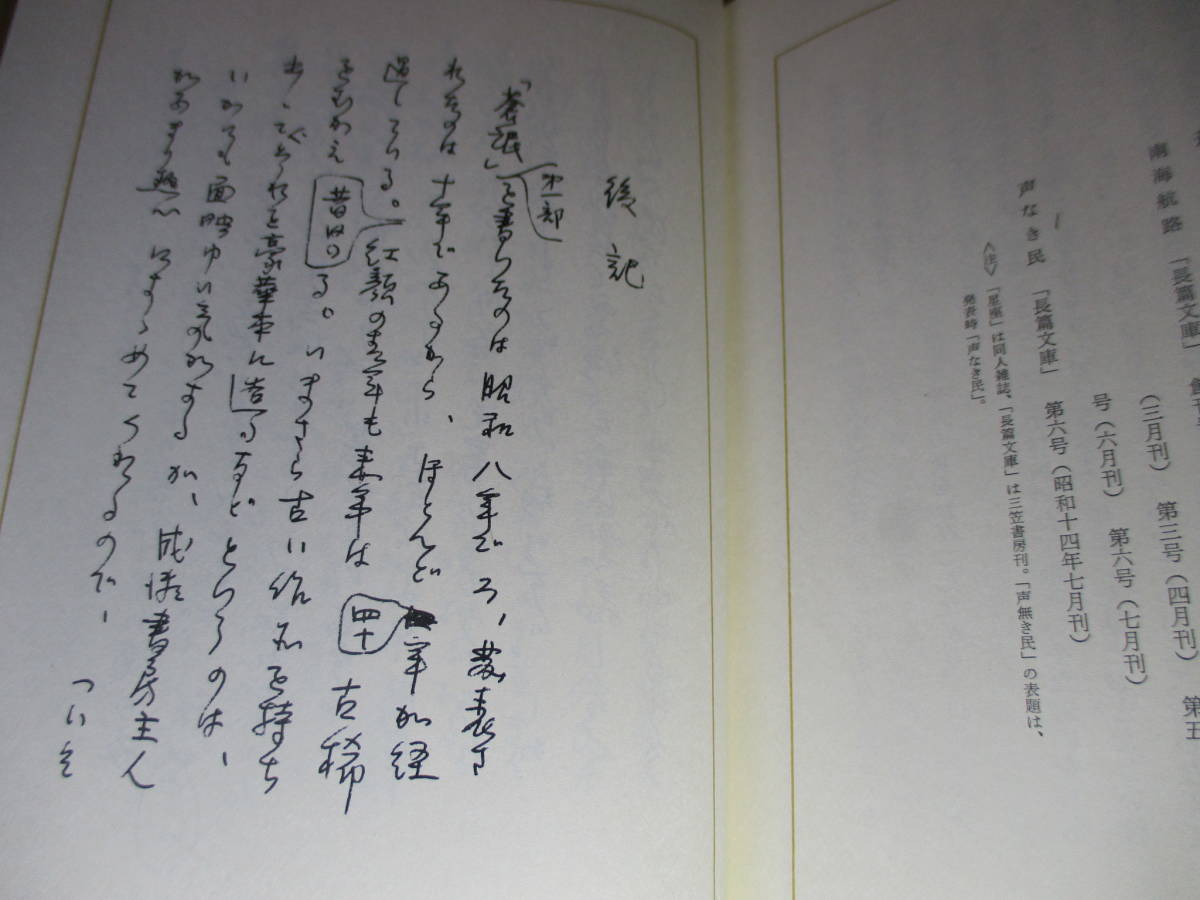 南海航路 「長篇文庫」
(三月刊) 第三号(四月刊) 第五
号(六月刊) 第六号(七月刊)
声なき民 「長篇文庫」 第六号(昭和十四年七月刊)
〈注〉「星座」は同人雑誌、「長篇文庫」は三笠書房刊。「声無き民」の表題は、
発表時「声なき民」。
後記
「蒼氓」第一部を書いたのは昭和八年ごろ、発表さ
れたのは十年であるから、ほとんど四十年が経
過している。昔日の紅顔の青年も来年は古稀
をむかえる。いまさら古い作品を持ち
これを豪華本に造るなどというのは、
いかにも面映ゆい気がするが、成瀬書房主人
があまり熱心にすすめてくれるので、ついそ